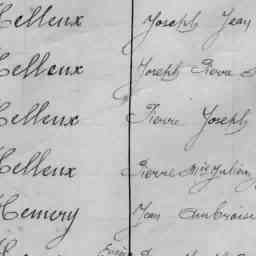 Helleux Joseph Jean
Helleux Joseph Pierre
Helleux Pierre Joseph
Helleux Pierre Mie Julien
Hemery Jean Ambroise